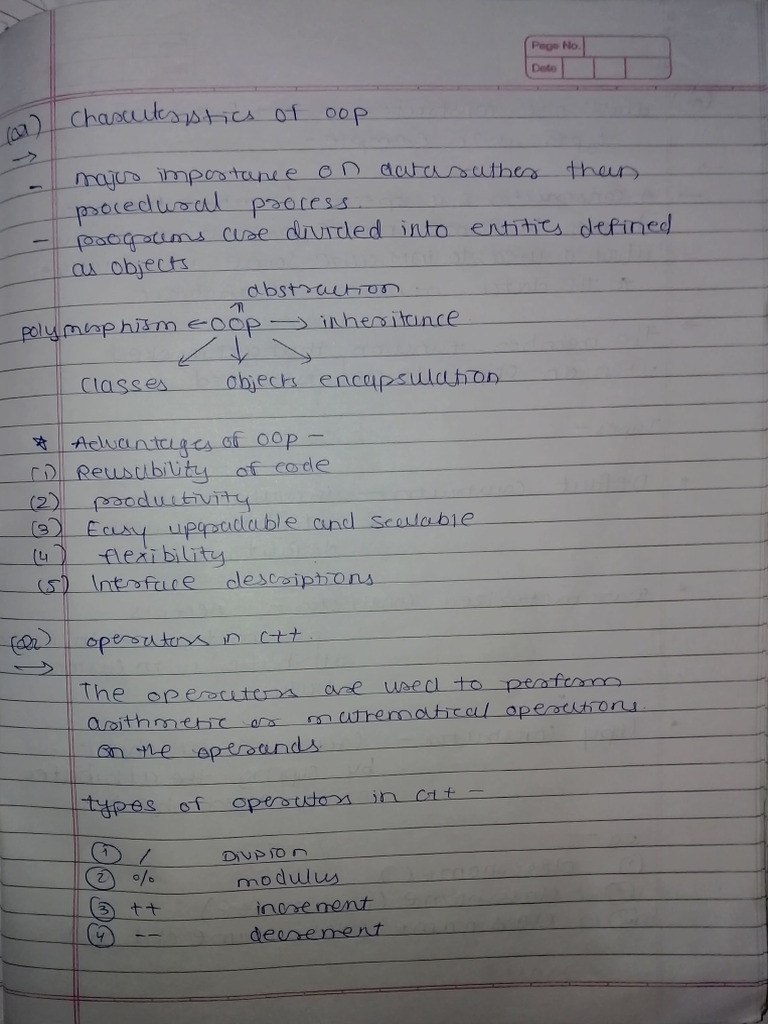 Page No.
Date
(Q1) Characteristics of OOP
→
- major importance on data rather than
procedural process.
- programs are divided into entities defined
as objects
abstraction
↑
polymorphism ← OOP → inheritance
↙ ↓ ↘
classes objects encapsulation
* Advantages of OOP -
(1) Reusability of code
(2) productivity
(3) Easy upgradable and scalable
(4) flexibility
(5) Interface descriptions
(Q2) operators in C++.
→
The operators are used to perform
arithmetic or mathematical operations
on the operands.
types of operators in C++ -
① / Division
② % modulus
③ ++ increment
④ -- decrement